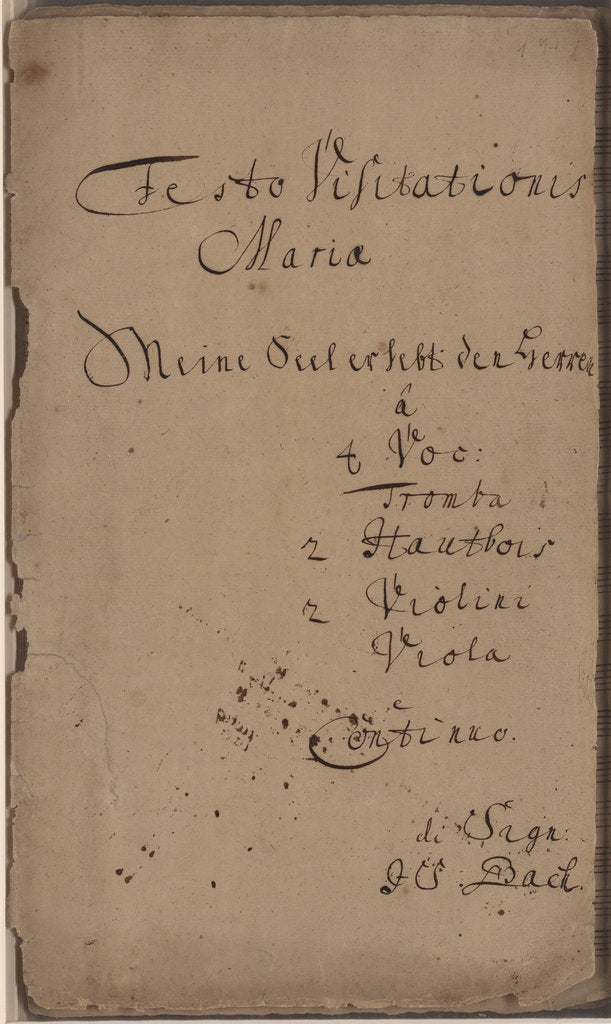 Festo Visitationis
Mariæ
Meine Seel erhebt den Herren
â
4 Voc:
Tromba
2 Hautbois
2 Violini
Viola
e
Continuo.
di Sign:
J S. Bach.